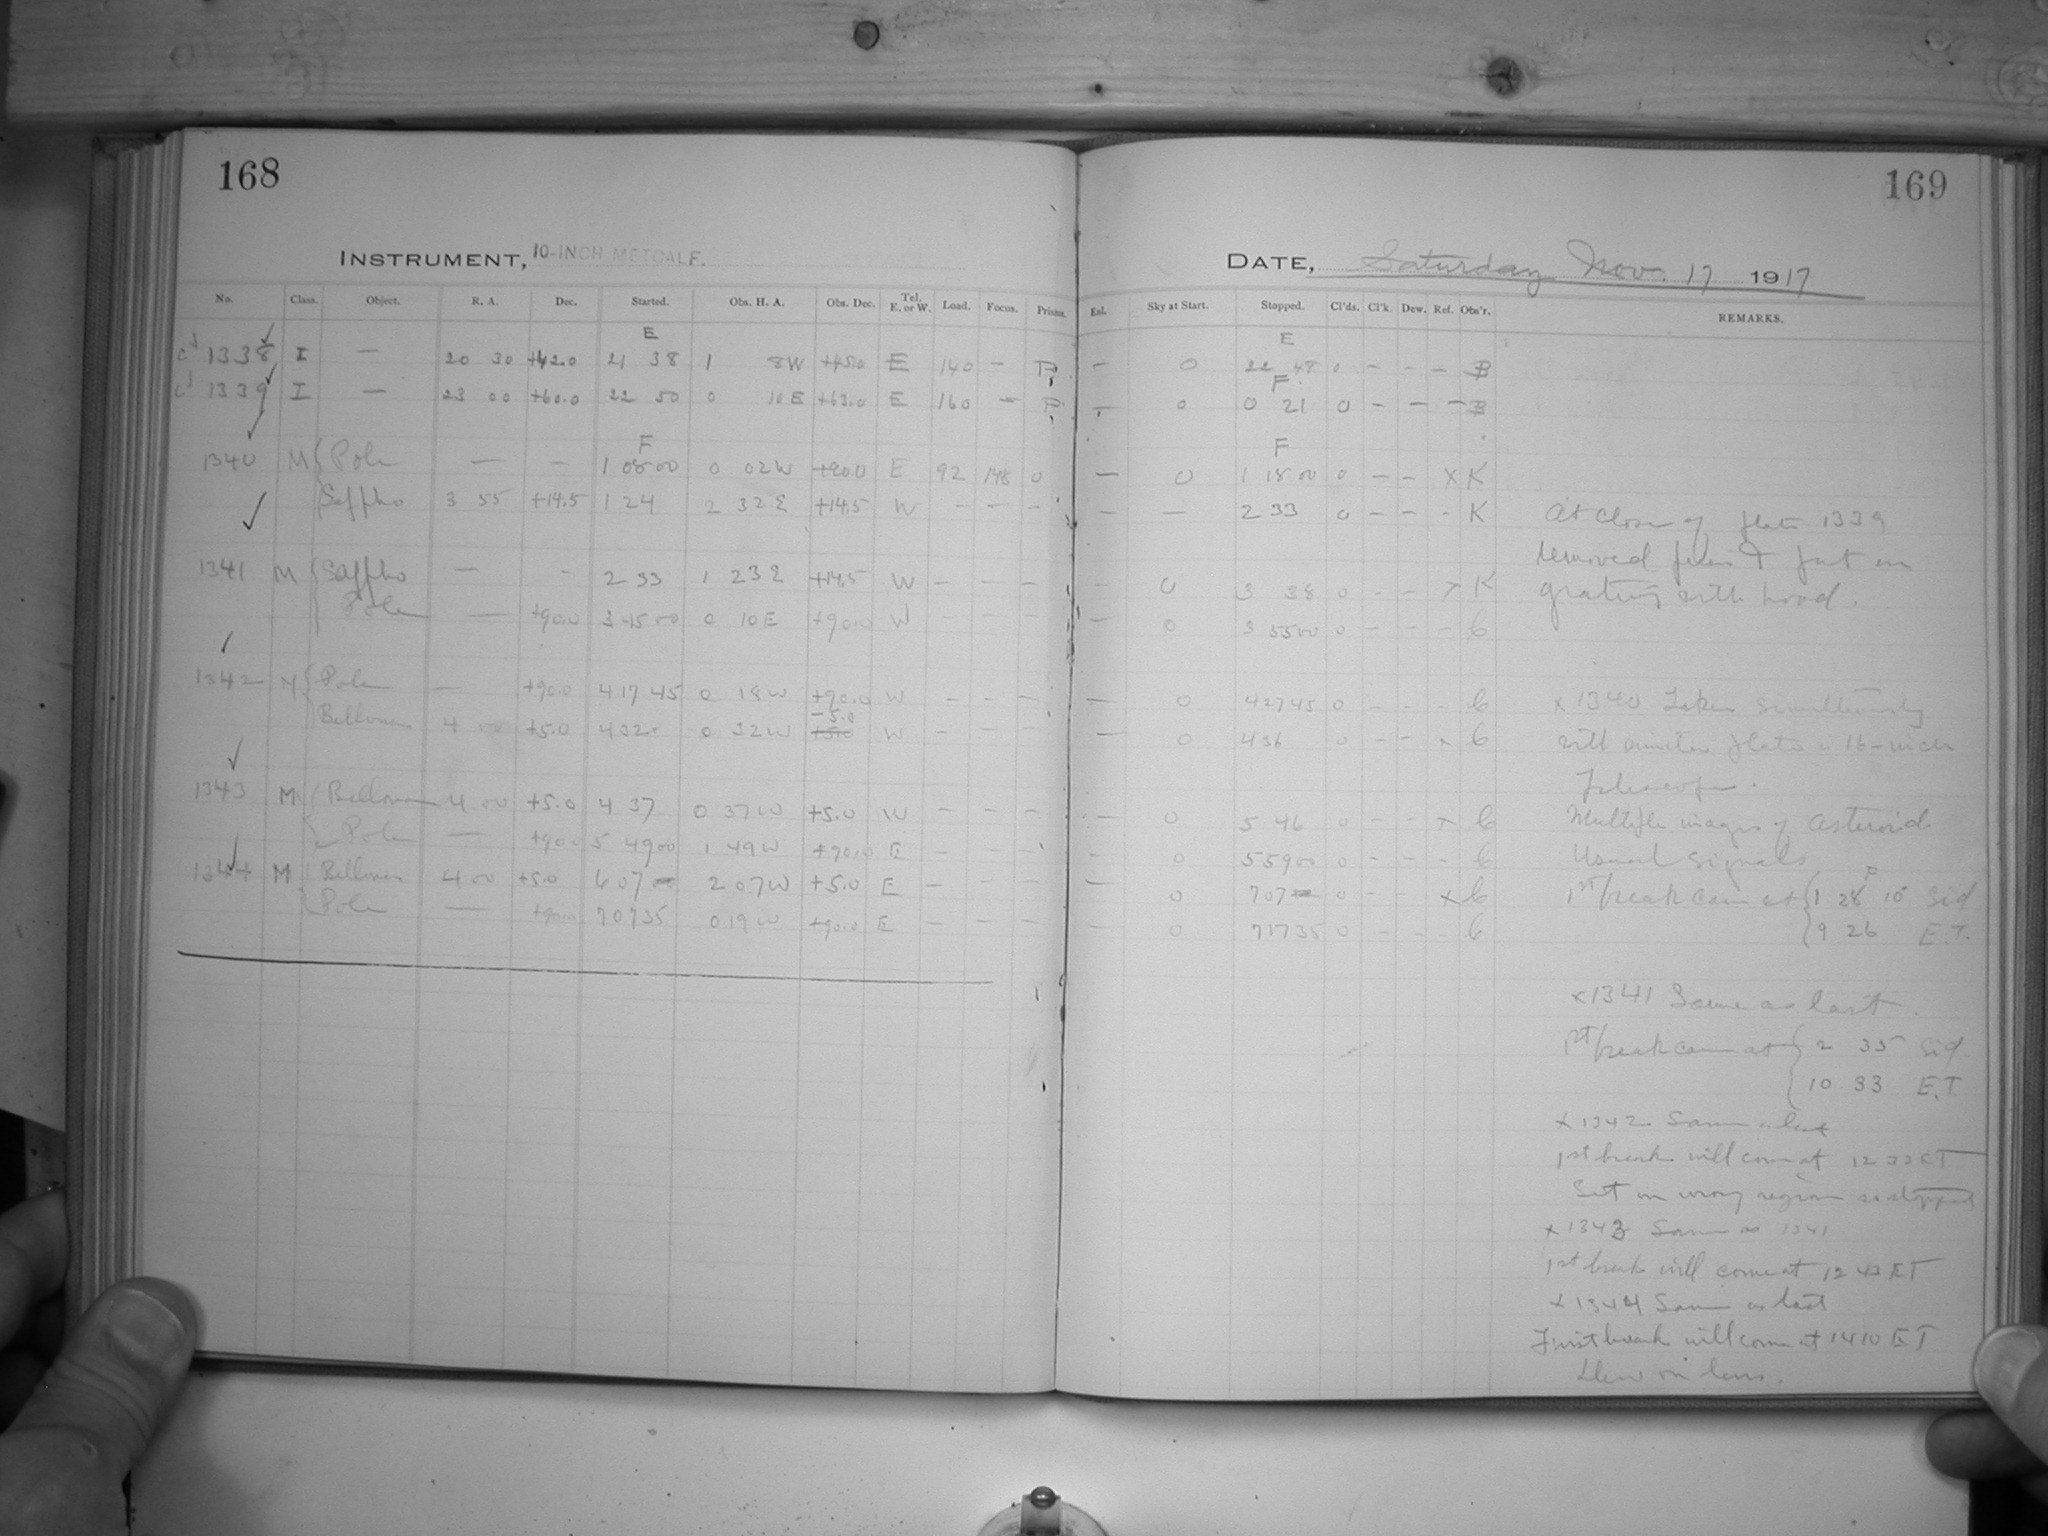 168
169
INSTRUMENT, 10-INCH METCALF.
DATE, Saturday Nov. 17 1917
No. Class. Object. R. A. Dec. Started. Obs. H. A. Obs. Dec. Tel. E. or W. Load. Focus. Prisms. Eal. Sky at Start. Stopped. Cl'ds. Cl'k. Dew. Ref. Obs'r. REMARKS.
E E
c 1338 I — 20 30 +42.0 21 38 1 8W +45.0 E 140 — P — 0 22 48 0 - - - B
F
c 1339 I — 23 00 +60.0 22 50 0 10E +63.0 E 160 — P — 0 0 21 0 - - - B
F F
1340 M Pole — — 1 08 00 0 02W +90.0 E 92 148 0 — 0 1 18 00 0 - - X K
Sappho 3 55 +14.5 1 24 2 32E +14.5 W - - - — — 2 33 0 - - - K At close of plate 1339
removed prism & put on
1341 M Sappho — - 2 33 1 23E +14.5 W - - - - 0 3 38 0 - - x K grating with hood.
Pole — +90.0 3 45 00 0 10E +90.0 W - - - — 0 3 55 00 0 - - - C
1342 M Pole — +90.0 4 17 45 0 18W +90.0 W - - - — 0 4 27 45 0 - - - C x 1340 Taken simultaneously
-5.0
Bellona 4 00 +5.0 4 32 0 32W +5.0 W - - - — 0 4 36 0 - - x C with similar plate in 16-inch
Telescope.
1343 M Bellona 4 00 +5.0 4 37 0 37W +5.0 W - - - — 0 5 46 0 - - x C Multiple images of asteroid
Pole — +90.0 5 49 00 1 49W +90.0 E - - - - 0 5 59 00 0 - - - C Usual signals
F
1344 M Bellona 4 00 +5.0 6 07 2 07W +5.0 E - - - — 0 7 07 0 - - x C 1st break came at 1 28 10 Sid
Pole — +90.0 7 07 35 0 19W +90.0 E - - - — 0 7 17 35 0 - - - C 9 26 E.T.
x 1341 Same as last.
1st break came at 2 35 Sid
10 33 E.T
x 1342 Same as last
1st break will come at 12 33 ET
Set on wrong region so stopped
x 1343 Same as 1341
1st break will come at 12 43 ET
x 1344 Same as last
First break will come at 14 10 ET
Dew on lens.